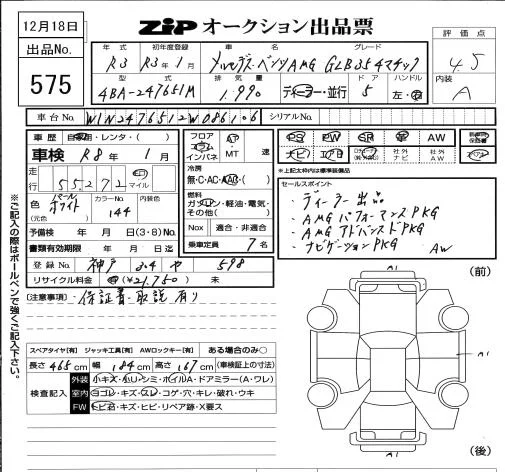 12月18日
出品No.
575
ZiP オークション出品票
評価点
4.5
内装
A
年式 初年度登録 車名 グレード
R3 R3年1月 メルセデス・ベンツAMG GLB35 4マチック
型式 排気量 ドア ハンドル
4BA-247651M 1,990 ディーラー・並行 5 左・右
車台No. W1N2476512W086106 シリアルNo.
車歴 自家用・レンタ・( )
車検 R8年 1月
走行 55,272 km マイル
色 パールホワイト (元色)
カラーNo. 144 内装色
予備検 年 月 日(3・8)No.
書類有効期限 年 月 日迄
登録No. 神戸 304 や 598
リサイクル料金 有(¥21,750) 未
注意事項: 保証書・取説有り
フロア コラム インパネ AT MT 速
冷房 無・C・AC・AAC・( )
燃料 ガソリン・軽油・電気・その他( )
Nox 適合・非適合
乗車定員 7名
PS PW SR 革 AW
ナビ エアB 社外ナビ 社外AW
新車時保証書
※上記太枠内は装備不備
セールスポイント
・ディーラー出品
・AMGパフォーマンスPKG
・AMGアドバンスドPKG
・ナビゲーションPKG AW
※ご記入の際はボールペンで強くご記入下さい。
スペアタイヤ[有] ジャッキ工具[有] AWロックキー[有] ある場合のみ○
長さ 465cm 幅 184cm 高さ 167cm (車検証上の寸法)
検査記入
外装 小キズ・小U・シミ・ホイルA・ドアミラー(A・ワレ)
室内 ヨゴレ・キズ・スレ・コゲ・穴・キレ・破れ・ウキ
FW トビ石・キズ・ヒビ・リペア跡・X要ス
(前)
(後)